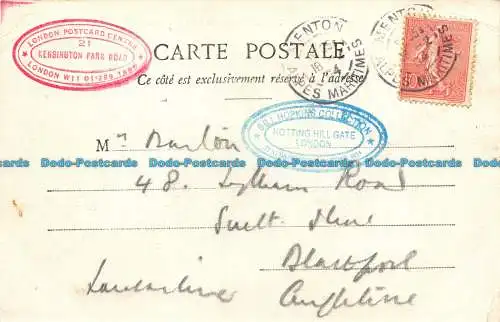 LONDON POSTCARD CENTRE
21
KENSINGTON PARK ROAD
LONDON W11 01-229 1888
CARTE POSTALE
Ce côté est exclusivement réservé à l'adresse
MENTON
ALPES MARITIMES
MENTON
ALPES MARITIMES
BILL HOPKINS COLLECTION
NOTTING HILL GATE
LONDON
Mr Burton
Dodo-Postcards Dodo-Postcards Dodo-Postcards Dodo-Postcards Dodo-Postcards
48. Lytham Road
South Shore
Blackpool
Lancashire
Angleterre